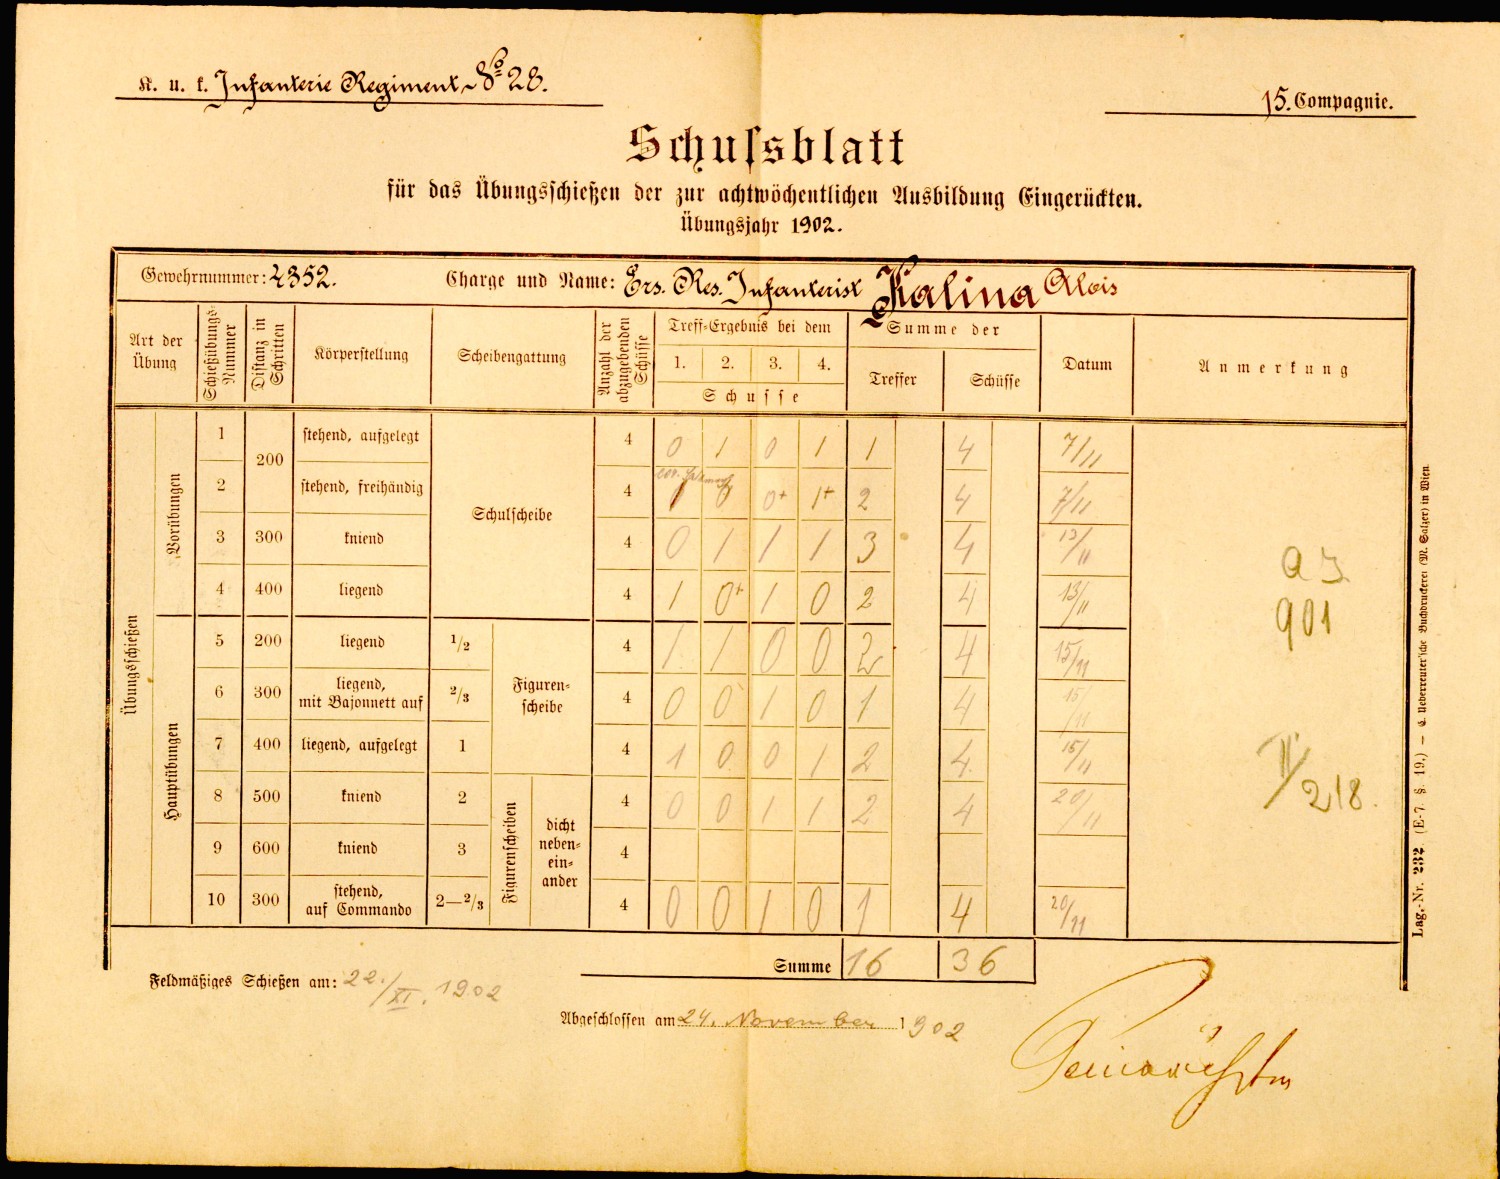 K. u. k. Infanterie Regiment No 28.
15. Compagnie.
Schussblatt
für das Übungsschießen der zur achtwöchentlichen Ausbildung Eingerückten.
Übungsjahr 1902.
Gewehrnummer: 4352. Charge und Name: Ers. Res. Infanterist Kalina Alois
Art der Übung Schießübungs-Nummer Distanz in Schritten Körperstellung Scheibengattung Anzahl der abzugebenden Schüsse Treff-Ergebnis bei dem 1. 2. 3. 4. Schusse Summe der Treffer Schüsse Datum Anmerkung
Übungsschießen
Vorübungen
1 200 stehend, aufgelegt Schulscheibe 4 0 1 0 1 1 4 7/11
2 stehend, freihändig 4 1 0 0+ 1+ 2 4 7/11
3 300 kniend 4 0 1 1 1 3 4 13/11
4 400 liegend 4 1 0+ 1 0 2 4 13/11
Hauptübungen
5 200 liegend 1/2 Figuren-scheibe 4 1 1 0 0 2 4 15/11
6 300 liegend, mit Bajonnett auf 2/3 4 0 0 1 0 1 4 15/11
7 400 liegend, aufgelegt 1 4 1 0 0 1 2 4 15/11
8 500 kniend 2 Figurenscheiben dicht neben-ein-ander 4 0 0 1 1 2 4 20/11
9 600 kniend 3 4
10 300 stehend, auf Commando 2—2/3 4 0 0 1 0 1 4 20/11
901
II/218.
Summe 16 36
Feldmäßiges Schießen am: 22./XI. 1902
Abgeschlossen am 24. November 1902
Lag.-Nr. 232. (E-7, §. 19.) — L. Ueberreuter'sche Buchdruckerei (M. Salzer) in Wien.